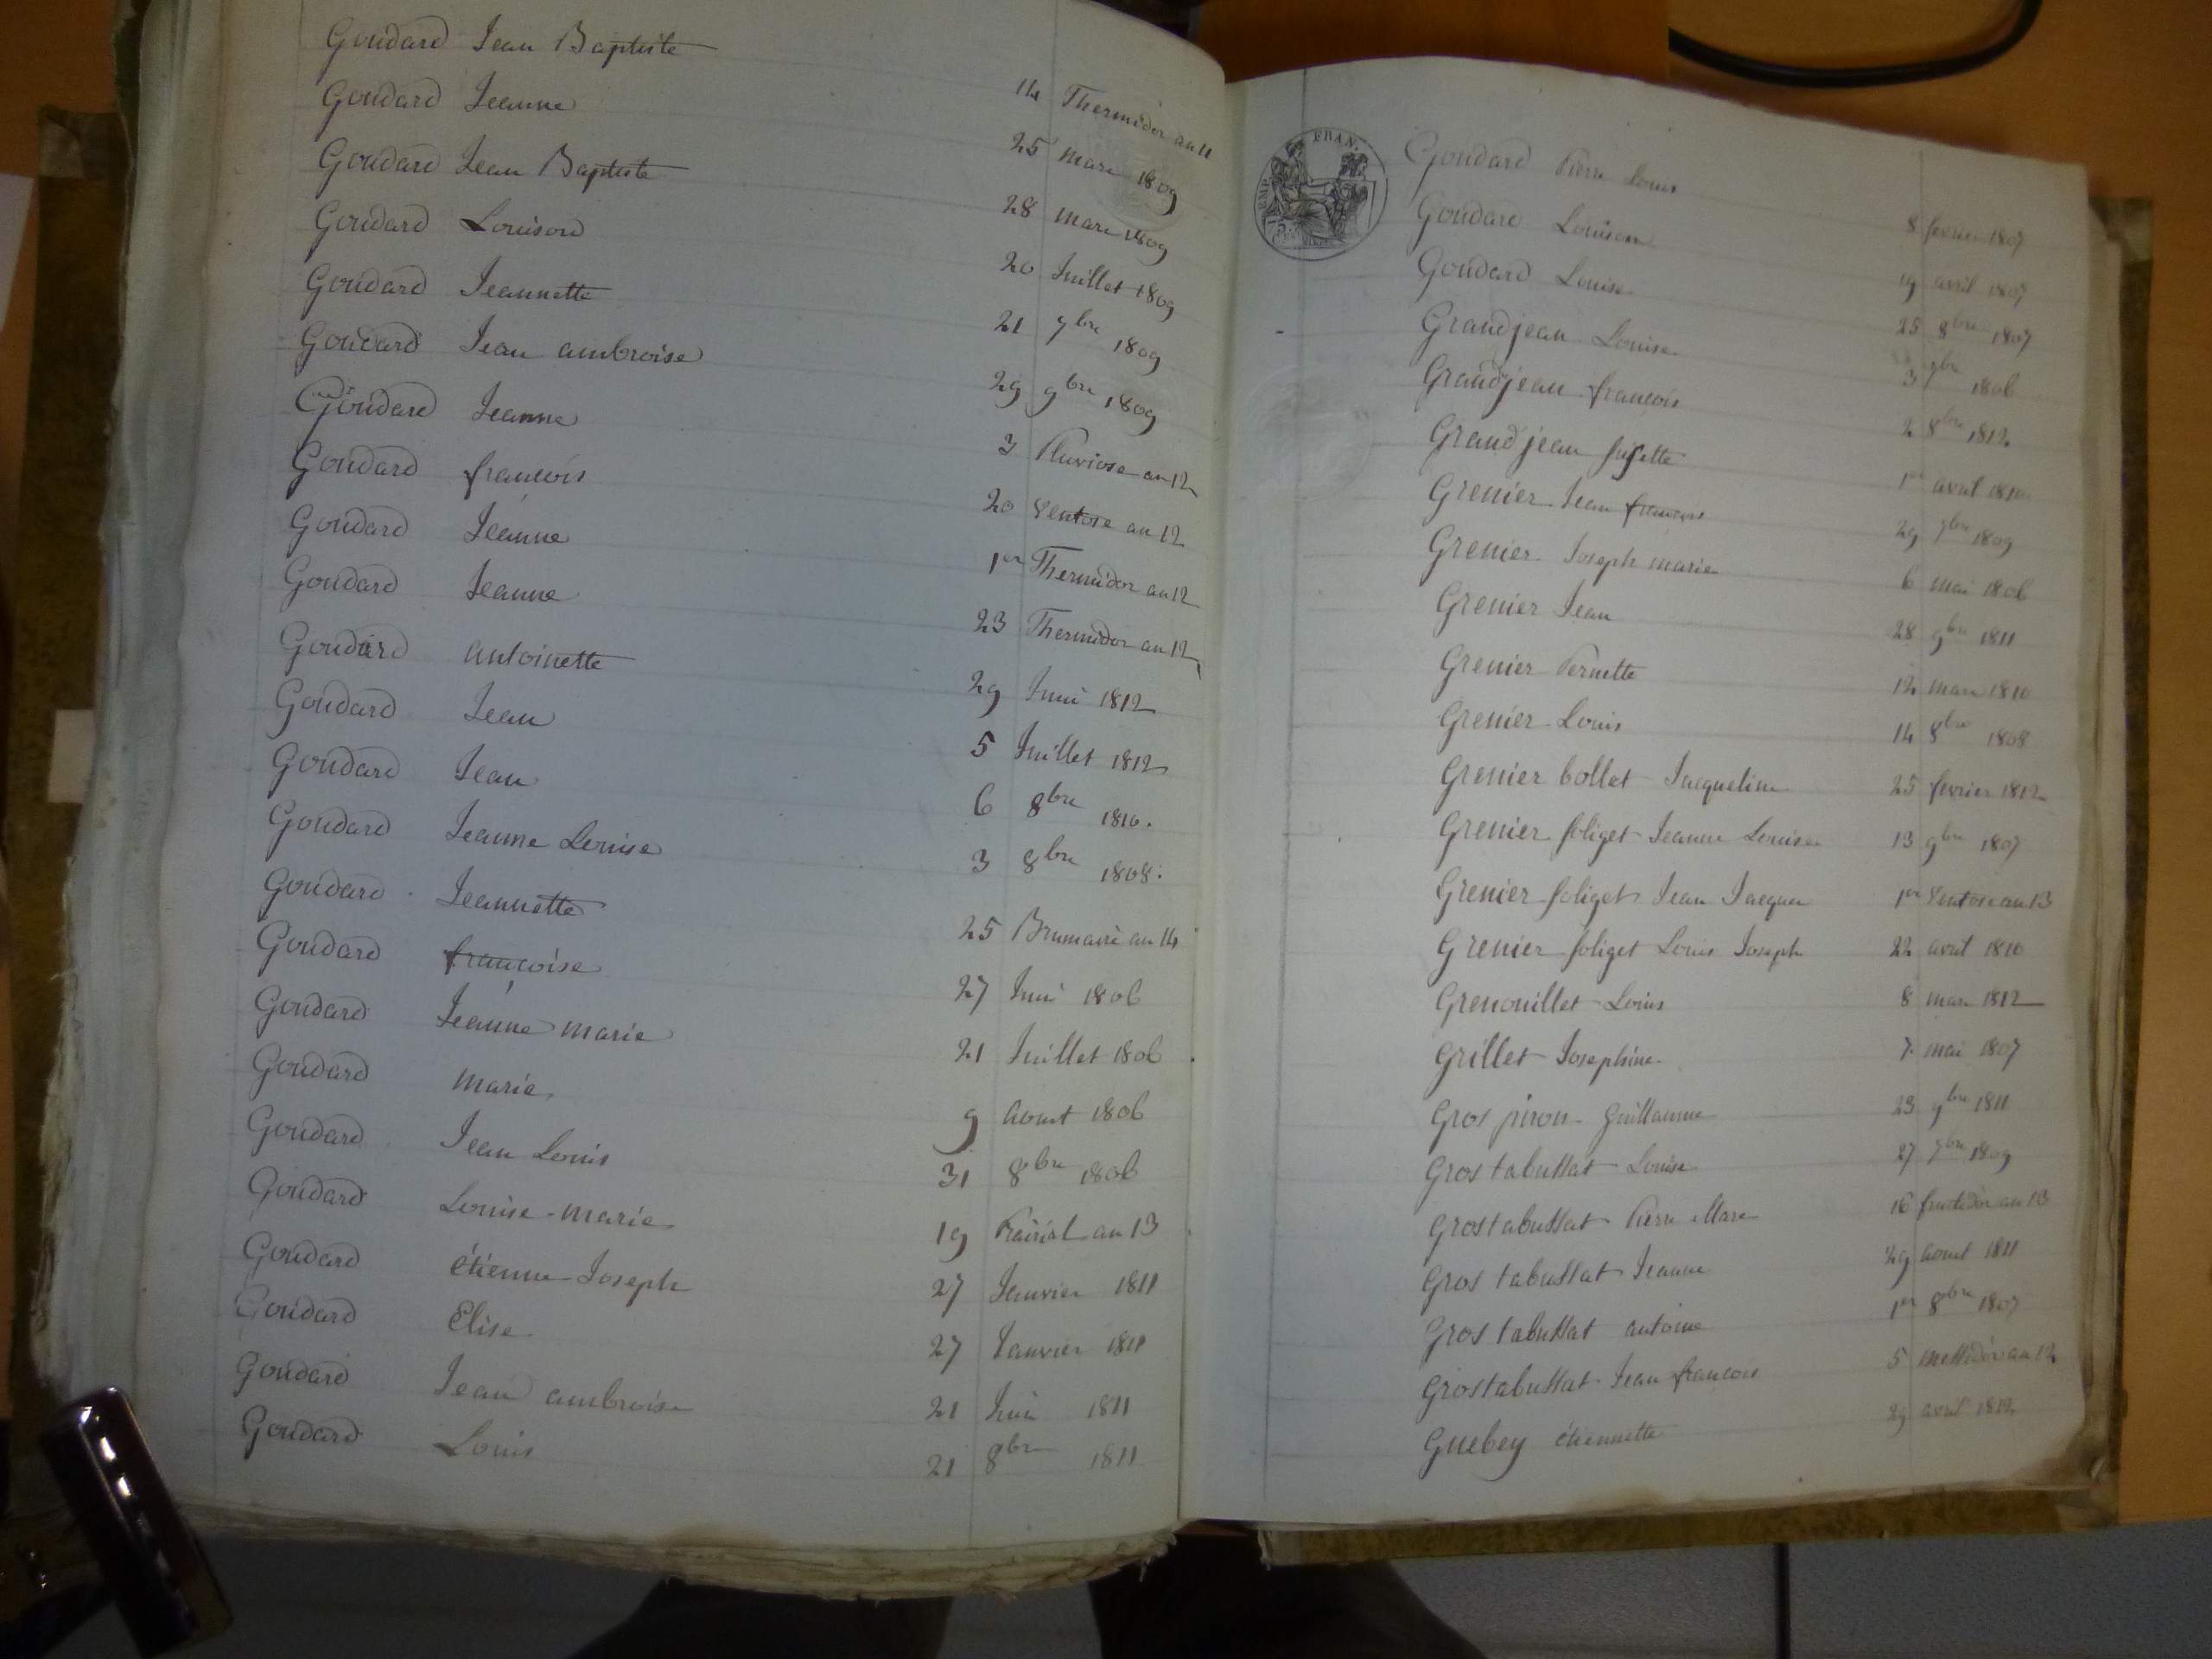 Goudard Jean Baptiste 14 Thermidor an 11
Goudard Jeanne 25 mars 1809
Goudard Jean Baptiste 28 mars 1809
Goudard Louison 20 Juillet 1809
Goudard Jeannette 21 7bre 1809
Goudard Jean ambroise 29 9bre 1809
Goudard Jeanne 3 Pluviose an 12
Goudard francois 20 Ventose an 12
Goudard Jeanne 1er Thermidor an 12
Goudard Jeanne 23 Thermidor an 12
Goudard antoinette 29 Juin 1812
Goudard Jean 5 Juillet 1812
Goudard Jean 6 8bre 1810.
Goudard Jeanne Louise 3 8bre 1808.
Goudard Jeannette 25 Brumaire an 14
Goudard françoise 27 Juin 1806
Goudard Jeanne marie 21 Juillet 1806
Goudard marie 9 aout 1806
Goudard Jean Louis 31 8bre 1806
Goudard Louise-marie 19 Prairial an 13
Goudard étienne Joseph 27 Janvier 1811
Goudard Elise 27 Janvier 1811
Goudard Jean ambroise 21 Juin 1811
Goudard Louis 21 8bre 1811
EMP. FRAN.
Goudard Pierre Louis 8 fevrier 1807
Goudard Louison 19 avril 1807
Goudard Louise 25 8bre 1807
Grandjean Louise 3 1806
Grandjean francois 2 8bre 1812
Grandjean 1er avril 1810
Grenier Jean francois 29 7bre 1809
Grenier Joseph marie 6 mai 1806
Grenier Jean 28 9bre 1811
Grenier Pernette 12 mars 1810
Grenier Louis 14 8bre 1808
Grenier bollet Jacqueline 25 fevrier 1812
Grenier foliget Jeanne Louise 13 9bre 1807
Grenier foliget Jean Jacques 1er Ventose an 13
Grenier foliget Louis Joseph 22 avril 1810
Grenouillet Louis 8 mars 1812
Grillet Josephine 7 mai 1807
Gros piron Guillaume 23 9bre 1811
Gros tabussat Louise 27 7bre 1809
Gros tabussat Pierre Marc 16 fructidor an 13
Gros tabussat Jeanne 29 aout 1811
Gros tabussat antoine 1er 8bre 1807
Gros tabussat Jean francois 5 messidor an 12
Guebey étiennette 29 avril 1812